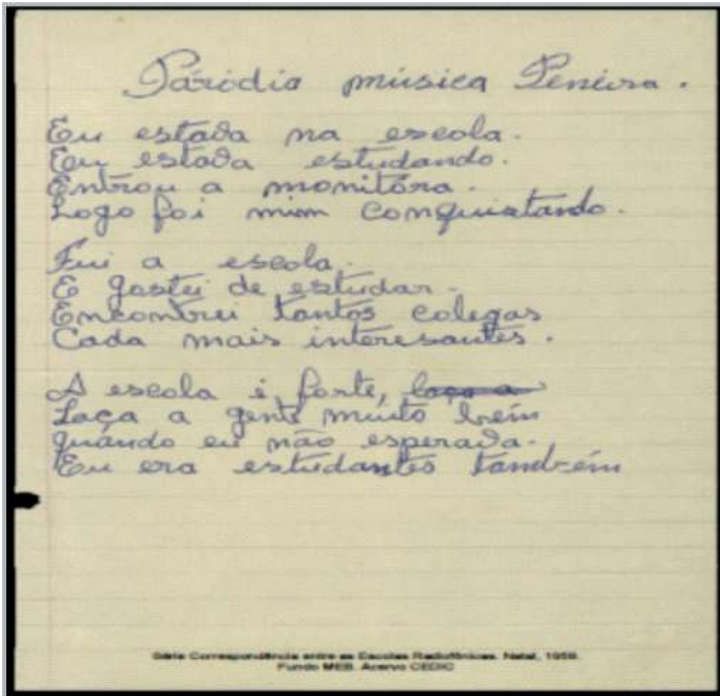 Paródia música Peneira.
Eu estada na escola.
Eu estada estudando.
Entrou a monitôra.
Logo foi mim conquistando.
Fui a escola.
E gostei de estudar.
Encontrei tantos colegas
Cada mais interesantes.
A escola é forte, laça a
Laça a gente muito bem
quando eu não esperada.
Eu era estudantes também
Série Correspondência entre as Escolas Radiofônicas. Natal, 1959.
Fundo MEB. Acervo CEDIC